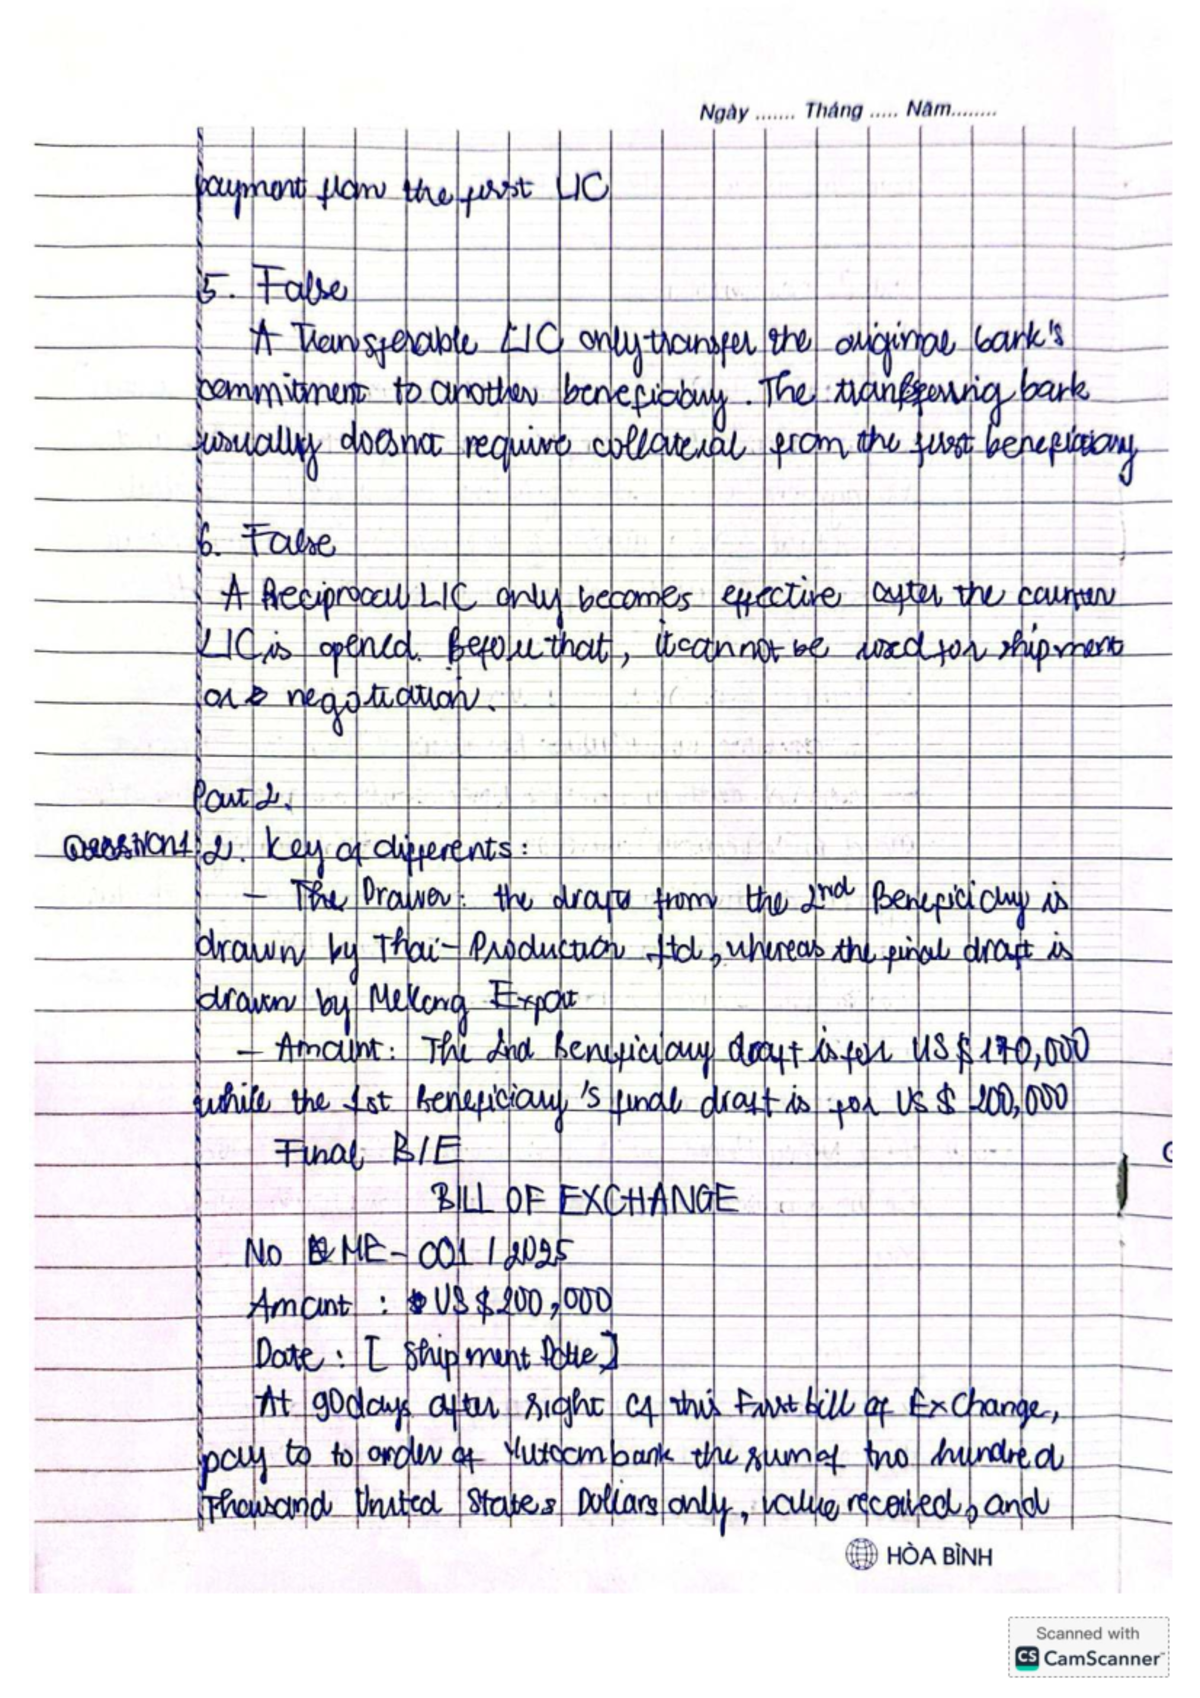 Ngày ....... Tháng ..... Năm........
payment from the first L/C
5. False
A Transferable L/C only transfer the original bank's
commitment to another beneficiary. The transferring bank
usually doesnot require collateral from the first beneficiary
6. False
A Reciprocal L/C only becomes effective after the counter
L/C is opened. Before that, it cannot be used for shipment
or negotiation.
Part 2.
Question1 2. Key of differents:
- The Drawer: the draft from the 2nd Beneficiary is
drawn by Thai-Production ltd, whereas the final draft is
drawn by Mekong Export
- Amount: The 2nd Beneficiary draft is for US $ 170,000
while the 1st Beneficiary's final draft is for US $ 200,000
Final B/E
BILL OF EXCHANGE
No ME-001/2025
Amount : US $200,000
Date : [ Shipment Date]
At 90days after sight of this First bill of Exchange,
pay to to order of the sum of two hundred
Thousand United States Dollars only, value received, and
HÒA BÌNH
Scanned with
CS CamScanner